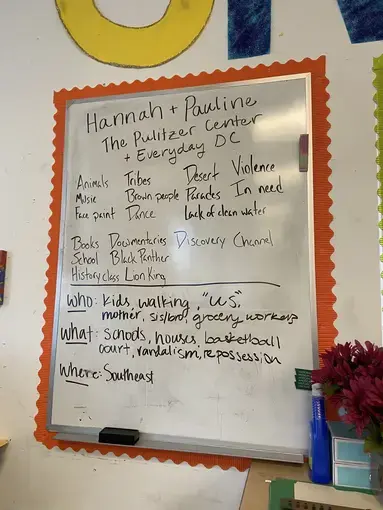 Hannah + Pauline
The Pulitzer Center
+ Everyday DC
Animals Tribes Desert Violence
Music Brown people Parades In need
Face paint Dance Lack of clean water
Books Documentaries Discovery Channel
School Black Panther
History class Lion King
Who: Kids, walking, "US",
mother, sis/bro, grocery workers
What: schools, houses, basketball
court, vandalism, repossession
Where: Southeast